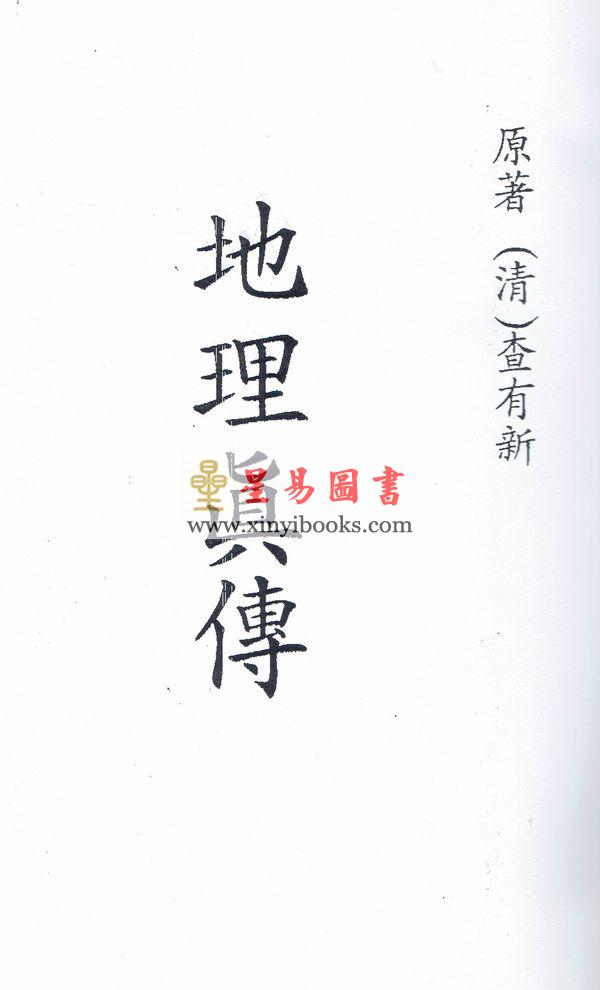 原著（清）查有新
地理眞傳
星易圖書
www.xinyibooks.com